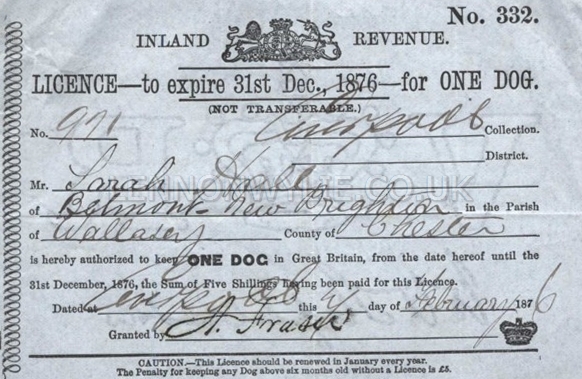 No. 332.
INLAND REVENUE.
LICENCE—to expire 31st Dec., 1876—for ONE DOG.
(NOT TRANSFERABLE.)
No. 971 Liverpool Collection.
District.
Mr. Sarah
of Belmont New Brighton in the Parish
of Wallasey County of Chester
is hereby authorized to keep ONE DOG in Great Britain, from the date hereof until the
31st December, 1876, the Sum of Five Shillings having been paid for this Licence.
Dated at Liverpool this day of February 1876
Granted by A. Fraser
CAUTION.—This Licence should be renewed in January every year.
The Penalty for keeping any Dog above six months old without a Licence is £5.